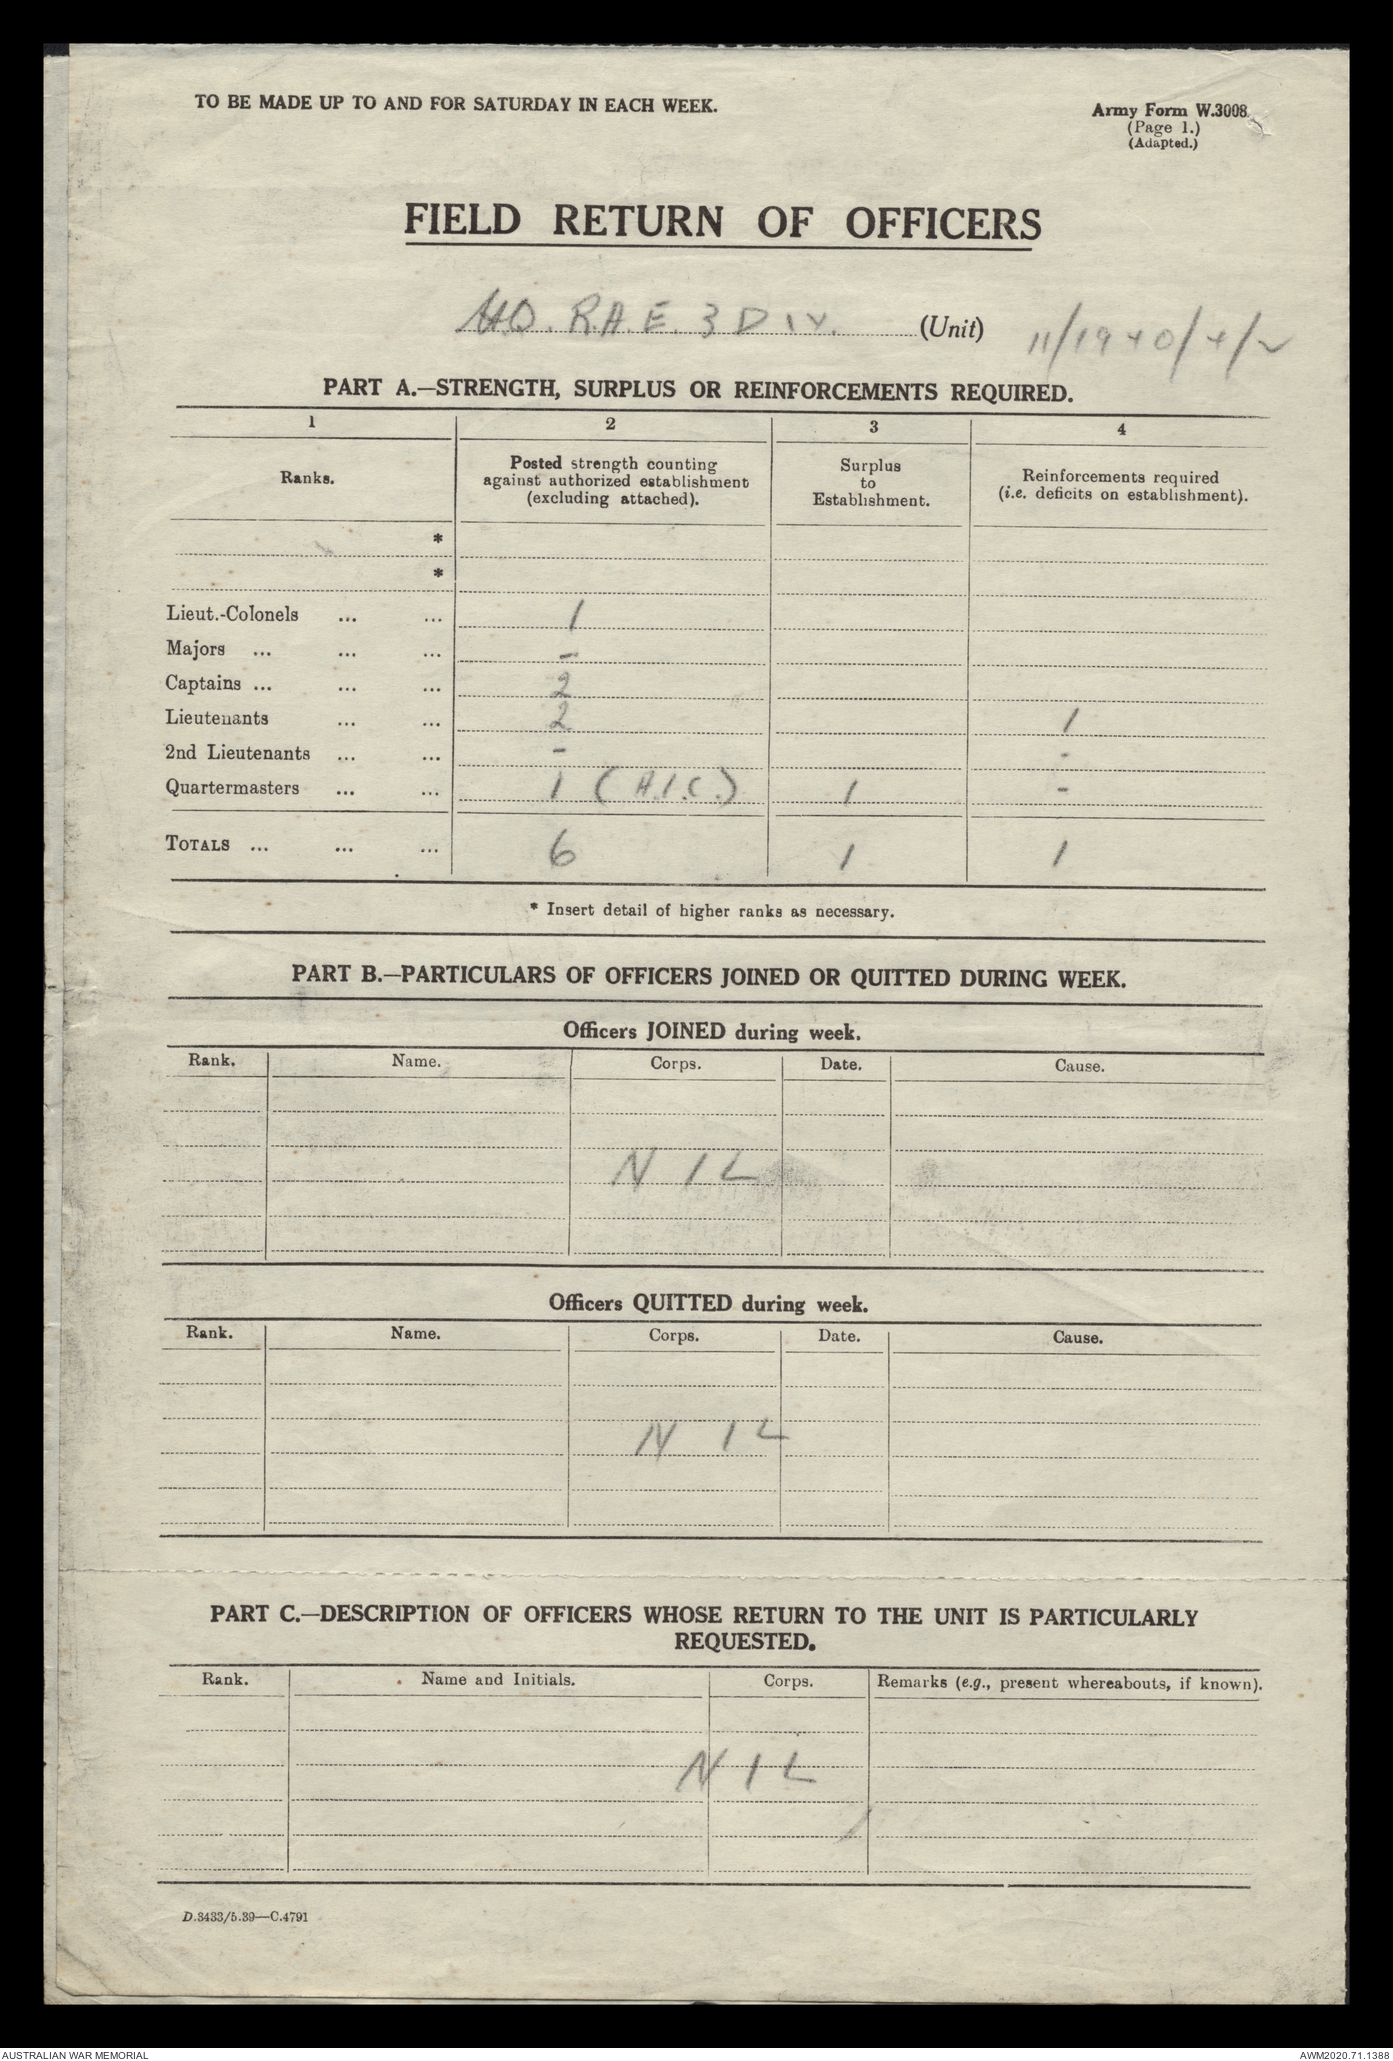 TO BE MADE UP TO AND FOR SATURDAY IN EACH WEEK.
Army Form W.3008.
(Page 1.)
(Adapted.)
FIELD RETURN OF OFFICERS
HQ. R.A.E. 3 DIV. (Unit)
11/1940/4/2
PART A.—STRENGTH, SURPLUS OR REINFORCEMENTS REQUIRED.
1 2 3 4
Ranks.
Posted strength counting
against authorized establishment
(excluding attached).
Surplus
to
Establishment.
Reinforcements required
(i.e. deficits on establishment).
*
*
Lieut.-Colonels ... ... 1
Majors ... ... ... -
Captains ... ... ... 2
Lieutenants ... ... 2 1
2nd Lieutenants ... ... - -
Quartermasters ... ... 1 (A.I.C.) 1 -
TOTALS ... ... ... 6 1 1
* Insert detail of higher ranks as necessary.
PART B.—PARTICULARS OF OFFICERS JOINED OR QUITTED DURING WEEK.
Officers JOINED during week.
Rank. Name. Corps. Date. Cause.
NIL
Officers QUITTED during week.
Rank. Name. Corps. Date. Cause.
NIL
PART C.—DESCRIPTION OF OFFICERS WHOSE RETURN TO THE UNIT IS PARTICULARLY
REQUESTED.
Rank. Name and Initials. Corps. Remarks (e.g., present whereabouts, if known).
NIL
D.3433/5.39—C.4791
AUSTRALIAN WAR MEMORIAL
AWM2020.71.1388